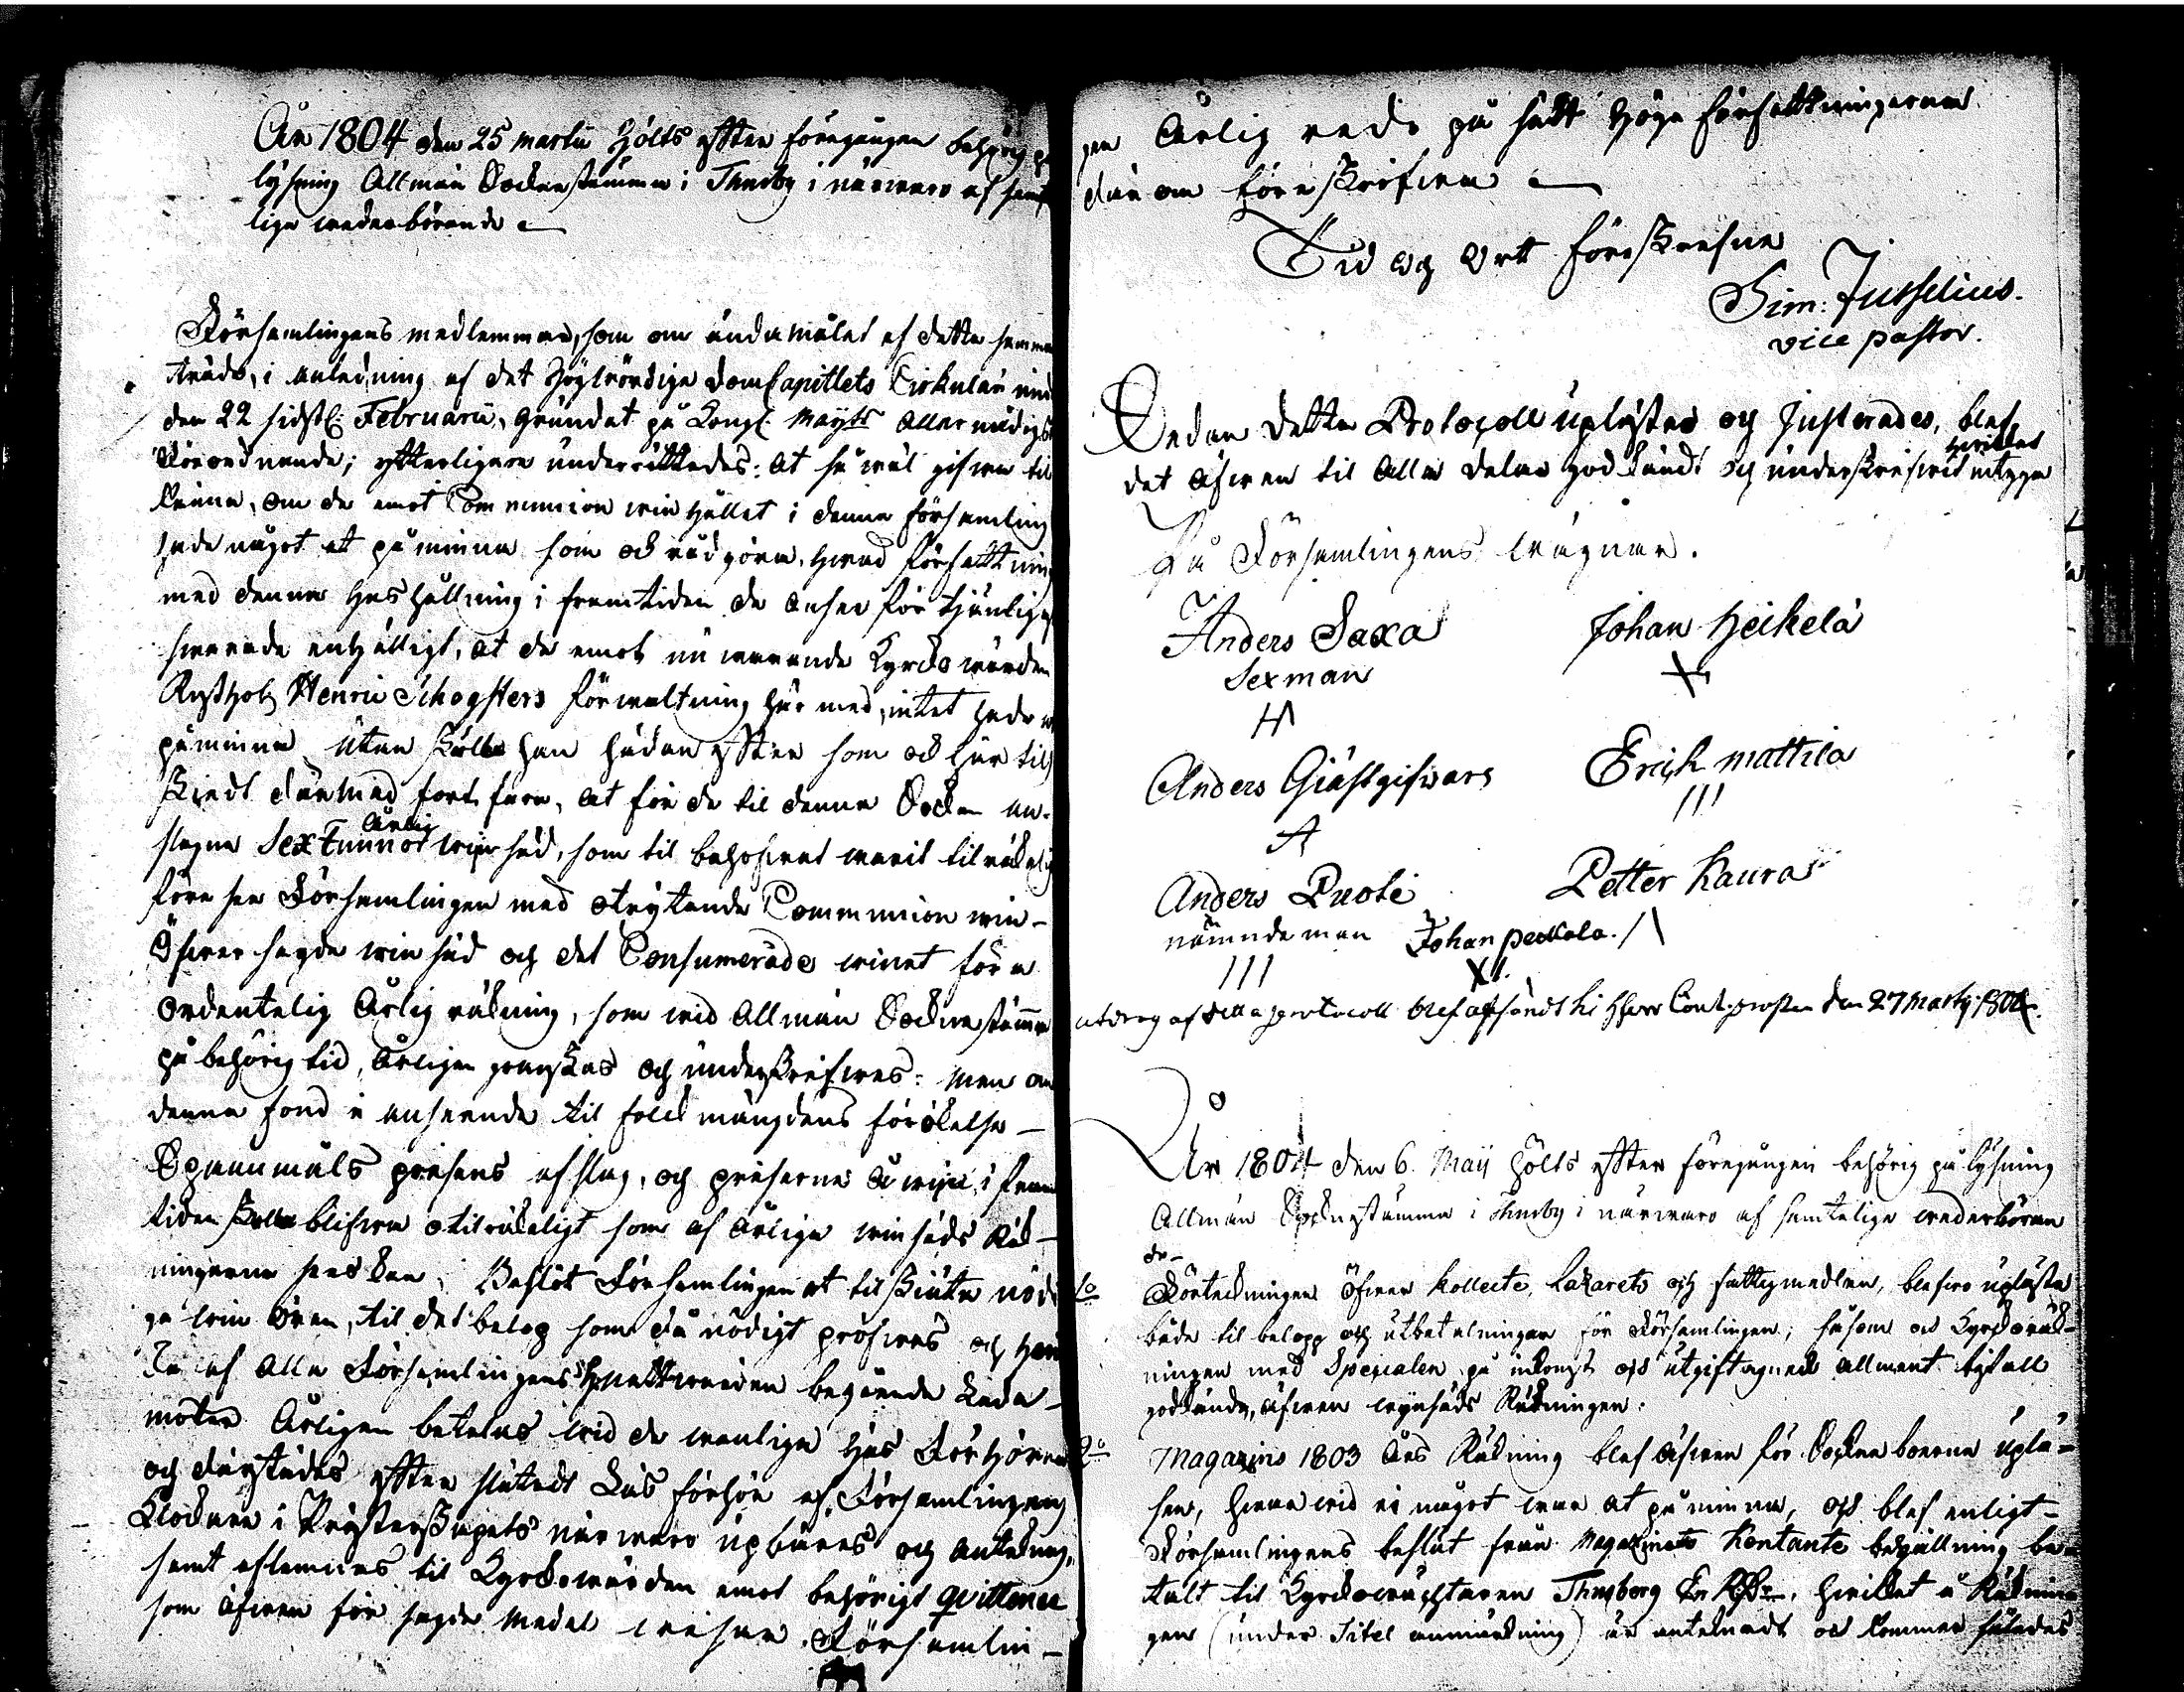 År 1804 den 25 Martii hölts efter föregången behörig på
lysning Allmän Sockenstämma i Thusby i närwaro af samt
lige wederbörande
Församlingens medlemmar, som om ändamålet af detta samman
träde, i anledning af det Högwördige DomCapitlets Cirkulair
den 22 sidstl. Februarii, grundat på Kongl. Mayts Allernådigst
Förordnande; ytterligare underrättades: at så wäl gifwa til
känna, om de emot Communion win hållet i denna församling
hade något at påminna som ock rådgöra, hwad författning
med denna hushållning i framtiden de anse för tjenligast
swarade enhälligt, at de emot nu warande Kyrkowärden
Rusthol. Henric Skogsters förwaltning här med, intet hade
påminna utan skulle han hädanefter som ock här til
skiedt därmed fortfara, at för de til denna Socken an-
slagne Sex Tunnor årlig winsäd, som til behofwet warit tilräckelig
förse Församlingen med otrytande Communion win-
Öfwer sagde winsäd och det Consumerade winet föra
ordentelig Årlig räkning, som wid Allmän Sockenstämma
på behörig tid, årligen granskas och underskrifwes: Men om
denna fond i anseende til folckmängdens förökelse -
Spannmåls prisens afslag, och priserne å win i fram
tiden skulle blifwa otilräckeligt som af årlige winsäds Räk-
ningarne synes kan, Beslöt Församlingen at tilskiuta nödi
ga win ören, til det belop som då nödigt pröfwes och
af alla Församlingens Nattwarden begående Leda-
möter Årligen betalas wid de wanlige Hus Förhören
och därstädes efter slutadt Läsförhör af Församlingens
Klockare i Prästerskapets närwaro upbäres och antecknas,
samt aflemnas til Kyrkowärden emot behörigt qvittence
som äfwen för sagde medel wisar Församlin-
gen Årlig redo på sätt höga författningarne
där om föreskrifwa
Tid och Ort föreskrefne
Sim: Jusselius.
vice pastor.
Sedan detta Protocoll uplästes och Justerades, blef
det äfwen til alla delar godkändt och underskrifwit hwilket intyga
På Församlingens wägnar.
Anders Saxa Johan Heikelä
Sexman
Anders Giästgifwars Erich Mattila
Anders Puoti Petter Kauras
nämndeman Johan Peckola.
utdrag af detta protocoll blef afsändt til Herr Contr.prosten den 27 Martij 1804.
År 1804 den 6. Maij hölts efter föregången behörig pålysning
Allmän Sockenstämma i Thusby i närwaro af samtelige wederböran
de-
1o Förteckningen öfwer Kollecte, Lazarets och fattigmedlen, blefwo upläste
både til belopp och utbetalningar för Församlingen; såsom ock Kyrkoräk-
ningen med Specialen på inkomst och utgift med allment bifall
godkände, äfwen winsäds Räkningen.
2o Magazins 1803 års Räkning blef äfwen för Sockneboerne uplä-
sen, hwarwid ej något war at påminna, och blef enligt-
Församlingens beslut från Magazinets Kontante behållning be-
talt til Kyrkowäcktaren Thusberg hwilket i Räknin
gen (under Titel anmärkning) är antecknadt och kommer således